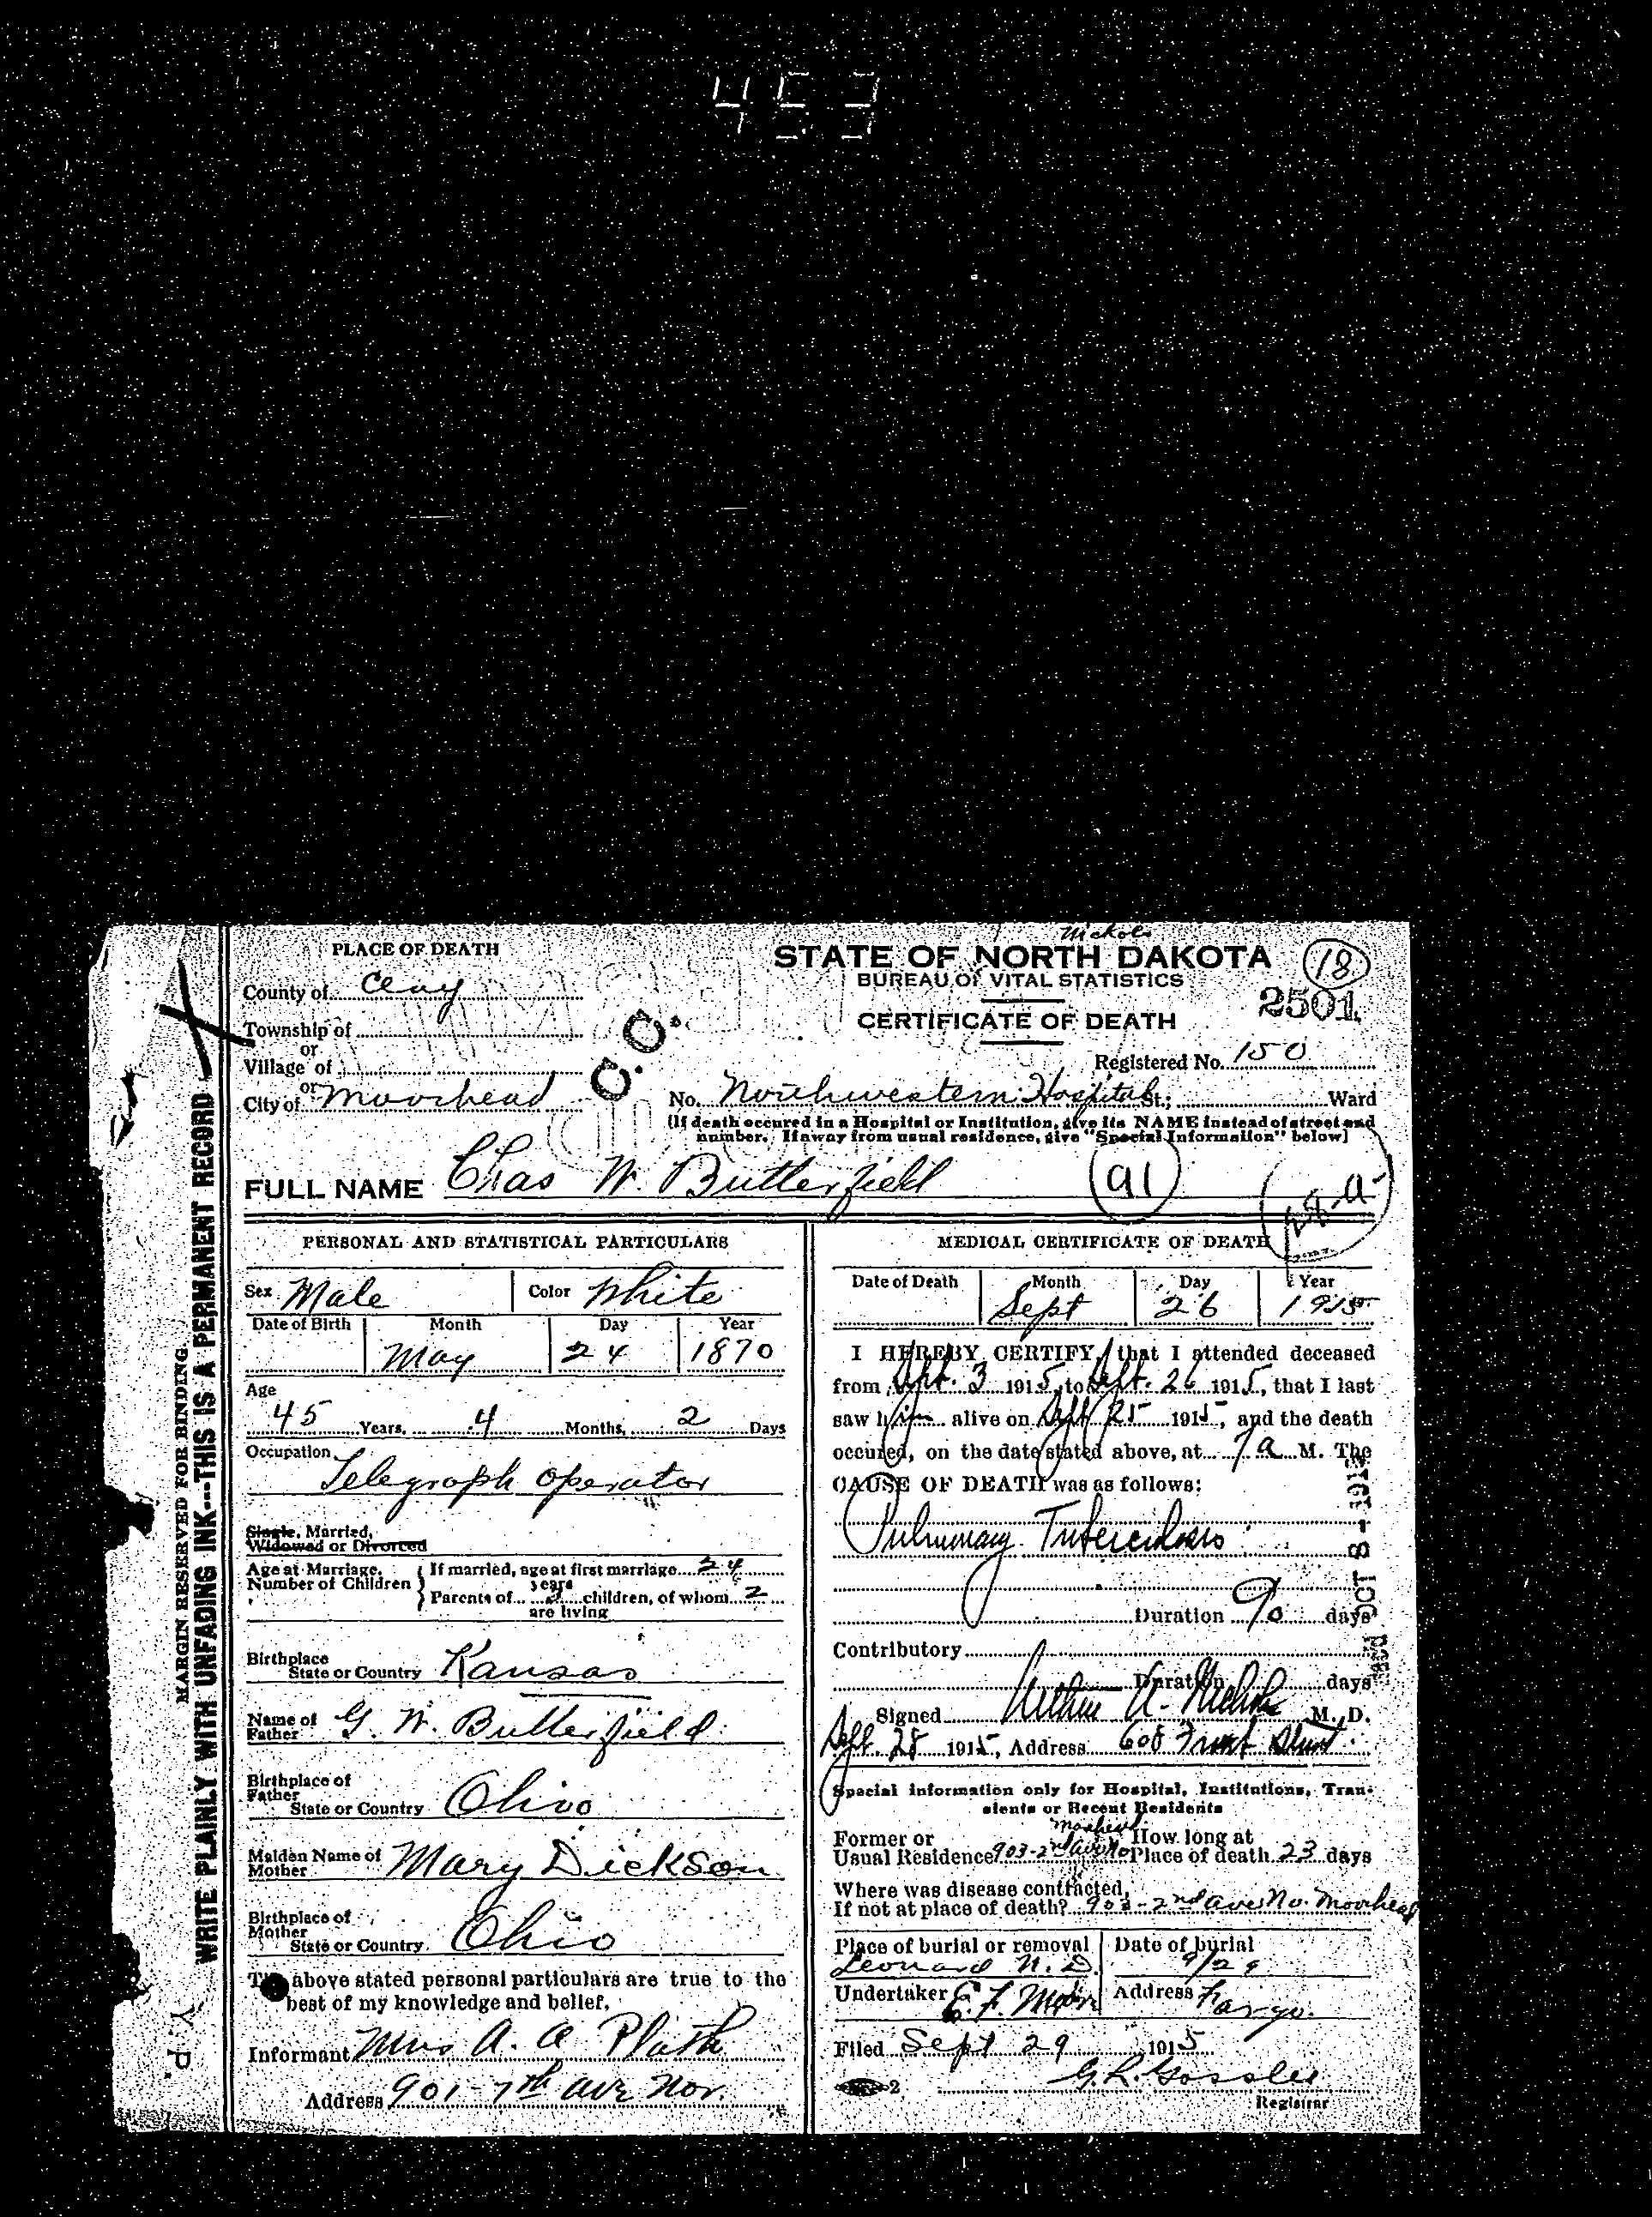 453
Nichols
PLACE OF DEATH
STATE OF NORTH DAKOTA
18
BUREAU OF VITAL STATISTICS
County of Clay
2501
CERTIFICATE OF DEATH
Township of
or
Village of
C.C.
Registered No. 150
or
City of Moorhead
No. Northwestern Hospital St.; Ward
[If death occured in a Hospital or Institution, give its NAME instead of street and
number. If away from usual residence, give "Special Information" below]
FULL NAME Chas W. Butterfield
91
28-a
PERSONAL AND STATISTICAL PARTICULARS
Sex Male Color White
Date of Birth Month Day Year
May 24 1870
Age
45 Years, 4 Months, 2 Days
Occupation
Telegraph Operator
Single, Married,
Widowed or Divorced
Age at Marriage. If married, age at first marriage 24
Number of Children years
Parents of children, of whom 2
are living
Birthplace
State or Country Kansas
Name of
Father G. W. Butterfield
Birthplace of
Father
State or Country Ohio
Maiden Name of
Mother Mary Dickson
Birthplace of
Mother
State or Country Ohio
The above stated personal particulars are true to the
best of my knowledge and belief.
Informant Mrs A. A. Plath
Address 901-7th ave Nor.
MEDICAL CERTIFICATE OF DEATH
Date of Death Month Day Year
Sept 26 1915
I HEREBY CERTIFY, that I attended deceased
from Sept. 3 1915, to Sept. 26 1915, that I last
saw him alive on Sept 25 1915, and the death
occured, on the date stated above, at 7 a M. The
CAUSE OF DEATH was as follows:
Pulmonary Tuberculosis
Duration 90 days
Contributory
Duration days
Signed Arthur A. Nichols M. D.
Sept. 28 1915, Address 608 Front Street.
Special information only for Hospital, Institutions, Tran-
sients or Recent Residents
Moorhead
Former or How long at
Usual Residence 903-2nd ave No Place of death 23 days
Where was disease contracted,
If not at place of death? 903-2nd ave No. Moorhead
Place of burial or removal Date of burial
Leonard N.D. 9/29
Undertaker E. F. Address Fargo.
Filed Sept 29 1915
2
G. L. Gosslee
Registrar
OCT 8 - 1915
MARGIN RESERVED FOR BINDING.
WRITE PLAINLY WITH UNFADING INK---THIS IS A PERMANENT RECORD
Y.P.